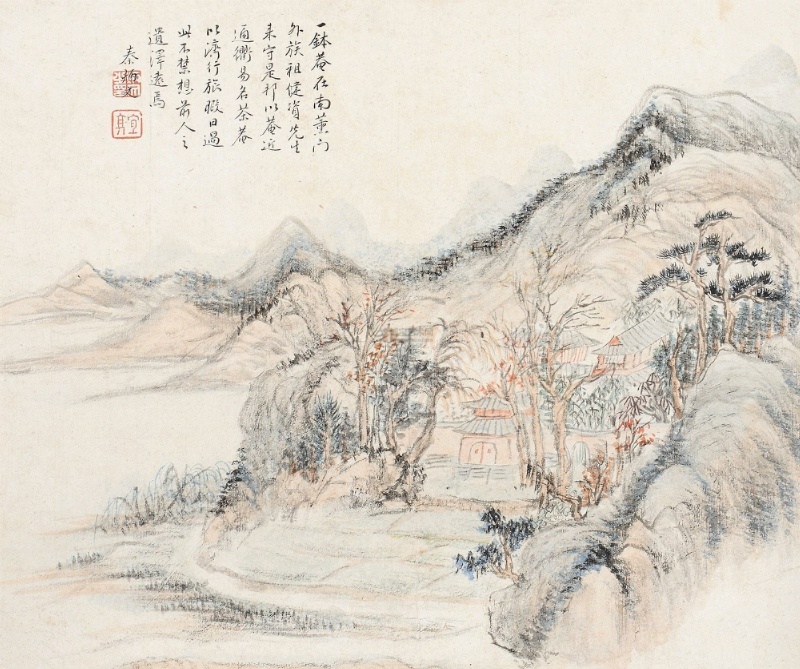 一鉢菴在南薰門
外族祖先生
來守是邦以菴近
通衢易名茶菴
以濟行旅暇日過
此不禁想前人之
遺澤遠焉
秦